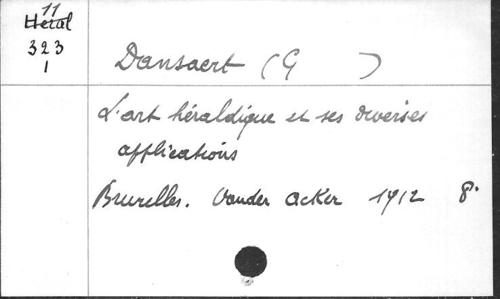 11
Heral
323
1
Dansaert (G )
L'art héraldique et ses diverses
applications
Bruxelles. Vander Acker 1912 8°